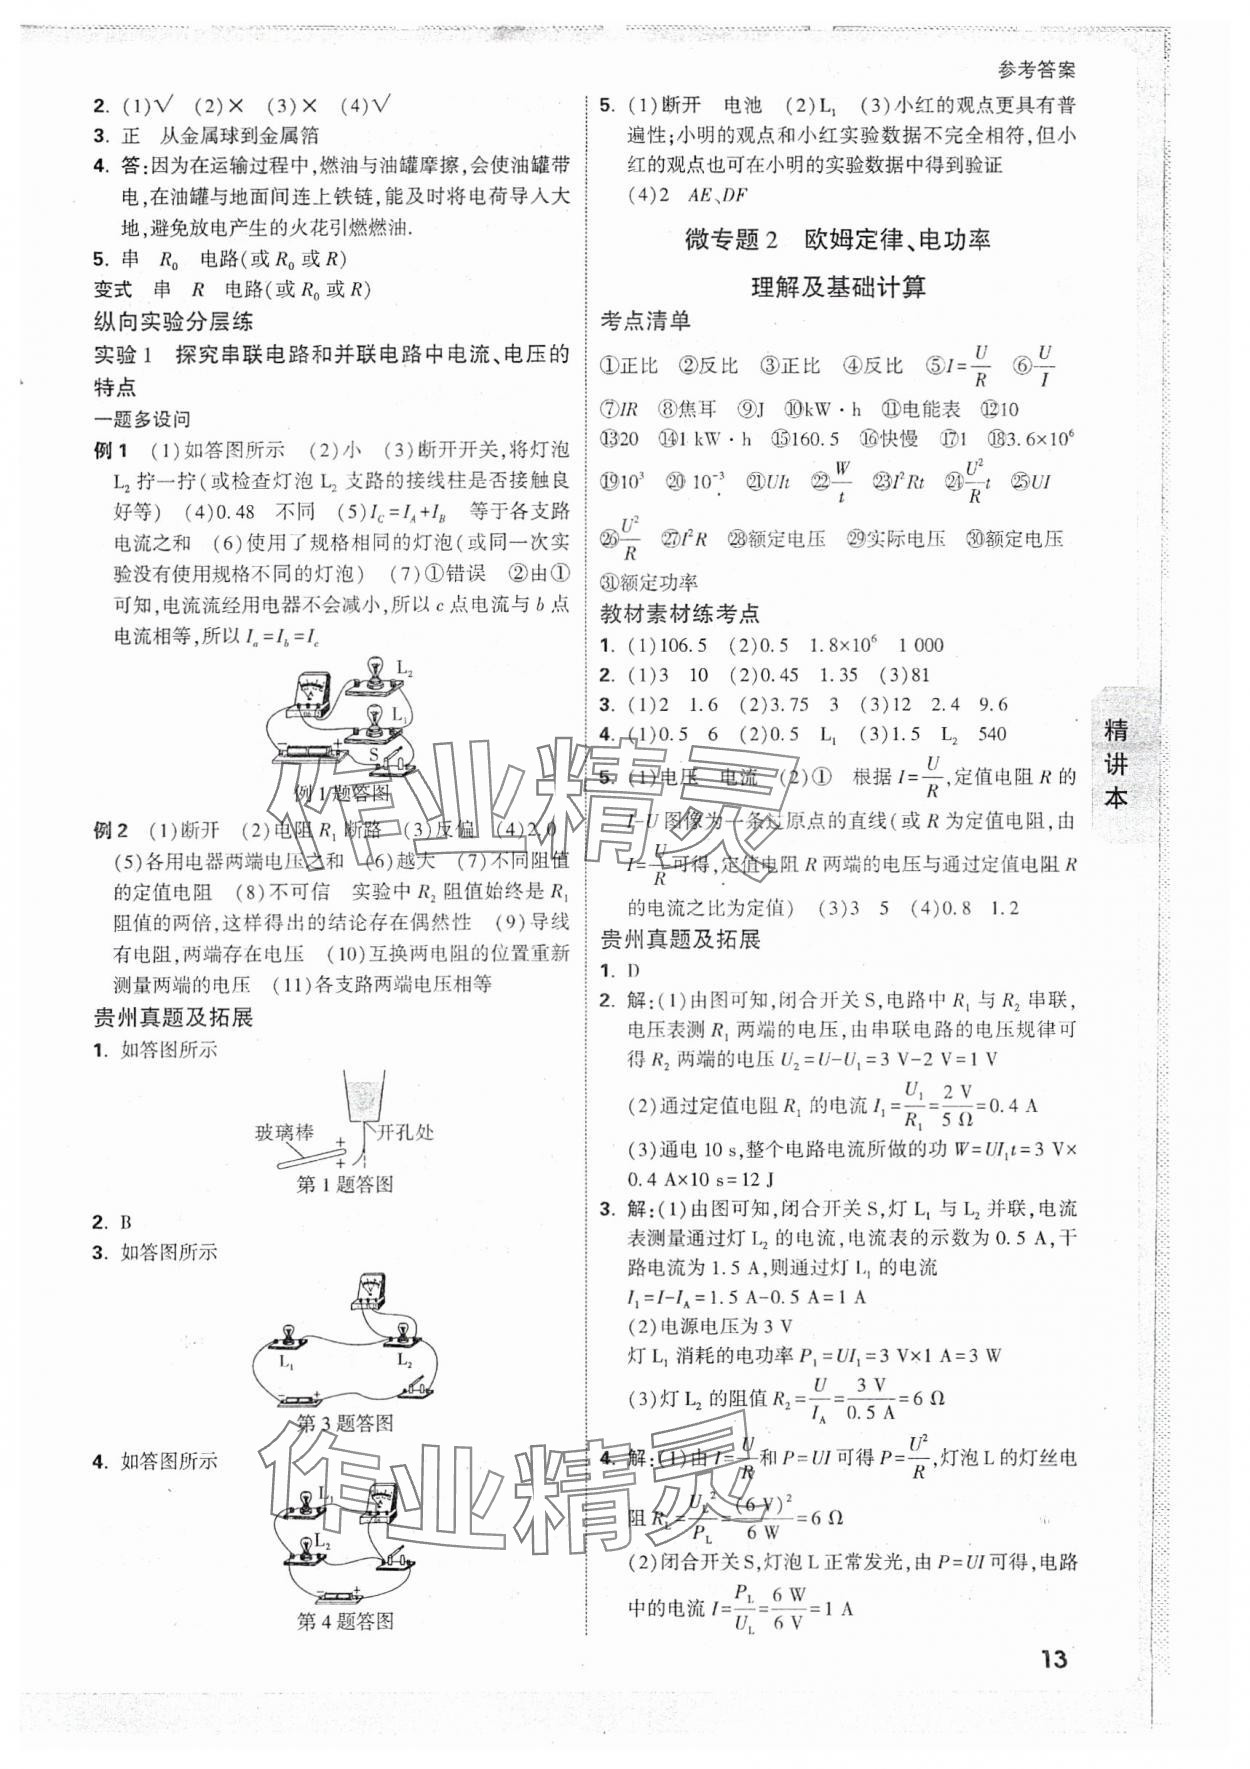 参考答案
2. (1)√ (2)× (3)× (4)√
3. 正 从金属球到金属箔
4. 答:因为在运输过程中,燃油与油罐摩擦,会使油罐带
电,在油罐与地面间连上铁链,能及时将电荷导入大
地,避免放电产生的火花引燃燃油.
5. 串 R₀ 电路(或R₀或R)
变式 串 R 电路(或R₀或R)
纵向实验分层练
实验1 探究串联电路和并联电路中电流、电压的
特点
一题多设问
例1 (1)如答图所示 (2)小 (3)断开开关,将灯泡
L₂拧一拧(或检查灯泡L₂支路的接线柱是否接触良
好等) (4)0.48 不同 (5)I_C=I_A+I_B 等于各支路
电流之和 (6)使用了规格相同的灯泡(或同一次实
验没有使用规格不同的灯泡) (7)①错误 ②由①
可知,电流流经用电器不会减小,所以c点电流与b点
电流相等,所以I_a=I_b=I_c
L₂
L₁
S
例1题答图
例2 (1)断开 (2)电阻R₁断路 (3)反偏 (4)2.0
(5)各用电器两端电压之和 (6)越大 (7)不同阻值
的定值电阻 (8)不可信 实验中R₂阻值始终是R₁
阻值的两倍,这样得出的结论存在偶然性 (9)导线
有电阻,两端存在电压 (10)互换两电阻的位置重新
测量两端的电压 (11)各支路两端电压相等
贵州真题及拓展
1. 如答图所示
玻璃棒 开孔处
第1题答图
2. B
3. 如答图所示
L₁ L₂
第3题答图
4. 如答图所示
L₁
L₂
第4题答图
5. (1)断开 电池 (2)L₁ (3)小红的观点更具有普
遍性;小明的观点和小红实验数据不完全相符,但小
红的观点也可在小明的实验数据中得到验证
(4)2 AE、DF
微专题2 欧姆定律、电功率
理解及基础计算
考点清单
①正比 ②反比 ③正比 ④反比 ⑤I=U/R ⑥U/I
⑦IR ⑧焦耳 ⑨J ⑩kW·h ⑪电能表 ⑫10
⑬20 ⑭1 kW·h ⑮160.5 ⑯快慢 ⑰1 ⑱3.6×10⁶
⑲10³ ⑳10⁻³ ㉑UIt ㉒W/t ㉓I²Rt ㉔U²/R t ㉕UI
㉖U²/R ㉗I²R ㉘额定电压 ㉙实际电压 ㉚额定电压
㉛额定功率
教材素材练考点
1. (1)106.5 (2)0.5 1.8×10⁶ 1 000
2. (1)3 10 (2)0.45 1.35 (3)81
3. (1)2 1.6 (2)3.75 3 (3)12 2.4 9.6
4. (1)0.5 6 (2)0.5 L₁ (3)1.5 L₂ 540
5. (1)电压 电流 (2)① 根据I=U/R,定值电阻R的
I-U图像为一条过原点的直线(或R为定值电阻,由
I=U/R可得,定值电阻R两端的电压与通过定值电阻R
的电流之比为定值) (3)3 5 (4)0.8 1.2
贵州真题及拓展
1. D
2. 解:(1)由图可知,闭合开关S,电路中R₁与R₂串联,
电压表测R₁两端的电压,由串联电路的电压规律可
得R₂两端的电压U₂=U-U₁=3 V-2 V=1 V
(2)通过定值电阻R₁的电流I₁=U₁/R₁=2 V/5 Ω=0.4 A
(3)通电10 s,整个电路电流所做的功W=UI₁t=3 V×
0.4 A×10 s=12 J
3. 解:(1)由图可知,闭合开关S,灯L₁与L₂并联,电流
表测量通过灯L₂的电流,电流表的示数为0.5 A,干
路电流为1.5 A,则通过灯L₁的电流
I₁=I-I_A=1.5 A-0.5 A=1 A
(2)电源电压为3 V
灯L₁消耗的电功率P₁=UI₁=3 V×1 A=3 W
(3)灯L₂的阻值R₂=U/I_A=3 V/0.5 A=6 Ω
4. 解:(1)由I=U/R和P=UI可得P=U²/R,灯泡L的灯丝电
阻R_L=U_L²/P_L=(6 V)²/6 W=6 Ω
(2)闭合开关S,灯泡L正常发光,由P=UI可得,电路
中的电流I=P_L/U_L=6 W/6 V=1 A
精讲本
13
作业精灵
作业精灵